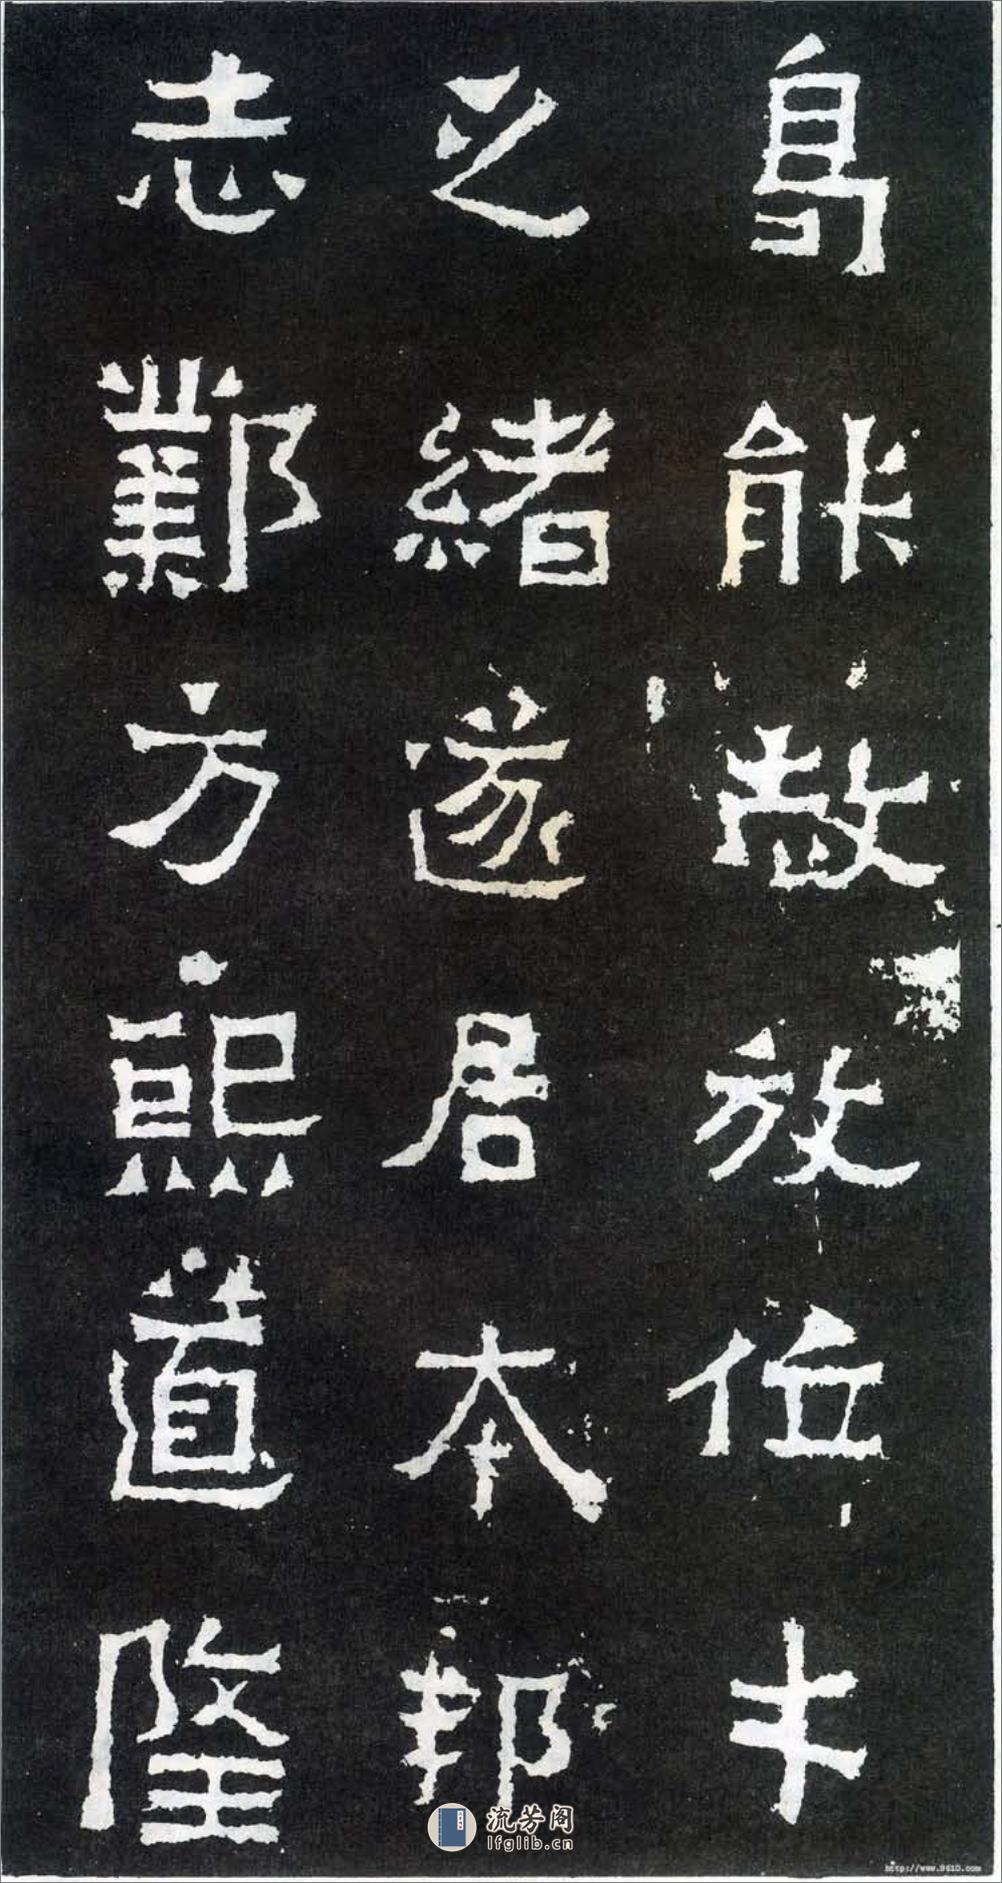 能放位
之緒遂居本邦
志鄴方熙道隆
流芳阁
lfglib.cn
http://www.9610.com